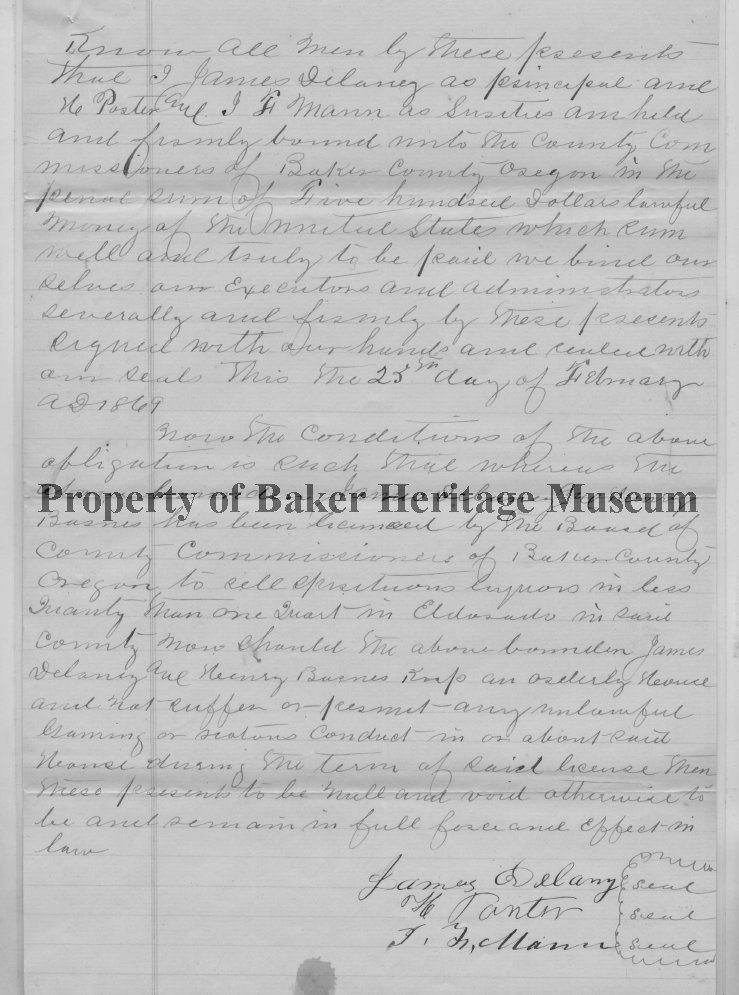 Know all Men by these presents
that I James Delaney as principal and
H Porter And I F Mann as Sureties am held
and firmly bound unto the County Com
missioners of Baker County Oregon in the
penal sum of Five hundred Dollars lawful
Money of the United States which sum
well and truly to be paid we bind our
selves our Executors and administrators
severally and firmly by these presents
signed with our hands and sealed with
our seals this the 25th day of February
AD 1869
Now the Conditions of the above
obligation is such that whereas the
Property of Baker Heritage Museum
Barnes has been licenced by the Board of
County Commissioners of Baker County
Oregon to sell spirituous liquors in less
Quanty than one Quart in Eldorado in said
County Now should the above bounden James
Delaney And Henry Barnes Keep an orderly House
and not suffer or permit any unlawful
Gaming or riotous Conduct in or about said
House during the term of said license then
these presents to be Null and void otherwise to
be and remain in full force and Effect in
law
James Delany seal
H seal
F. Mann seal